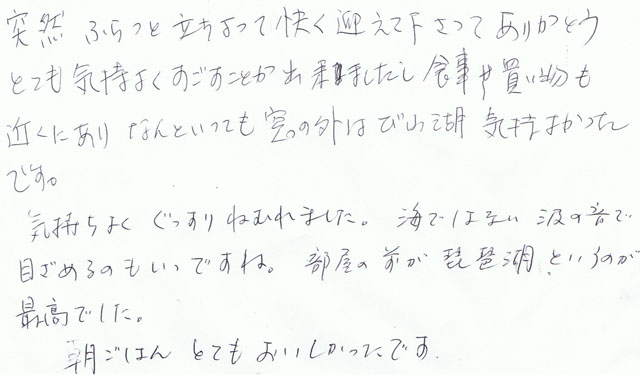 突然 ふらっと立ちよって快く迎えて下さってありがとう
とても気持よくすごすことが出来ましたし食事や買い物も
近くにあり なんといっても窓の外はびわ湖 気持よかった
です。
気持ちよく ぐっすりねむれました。海ではない波の音で
目ざめるのもいいですね。部屋の前が琵琶湖というのが
最高でした。
朝ごはん とてもおいしかったです.